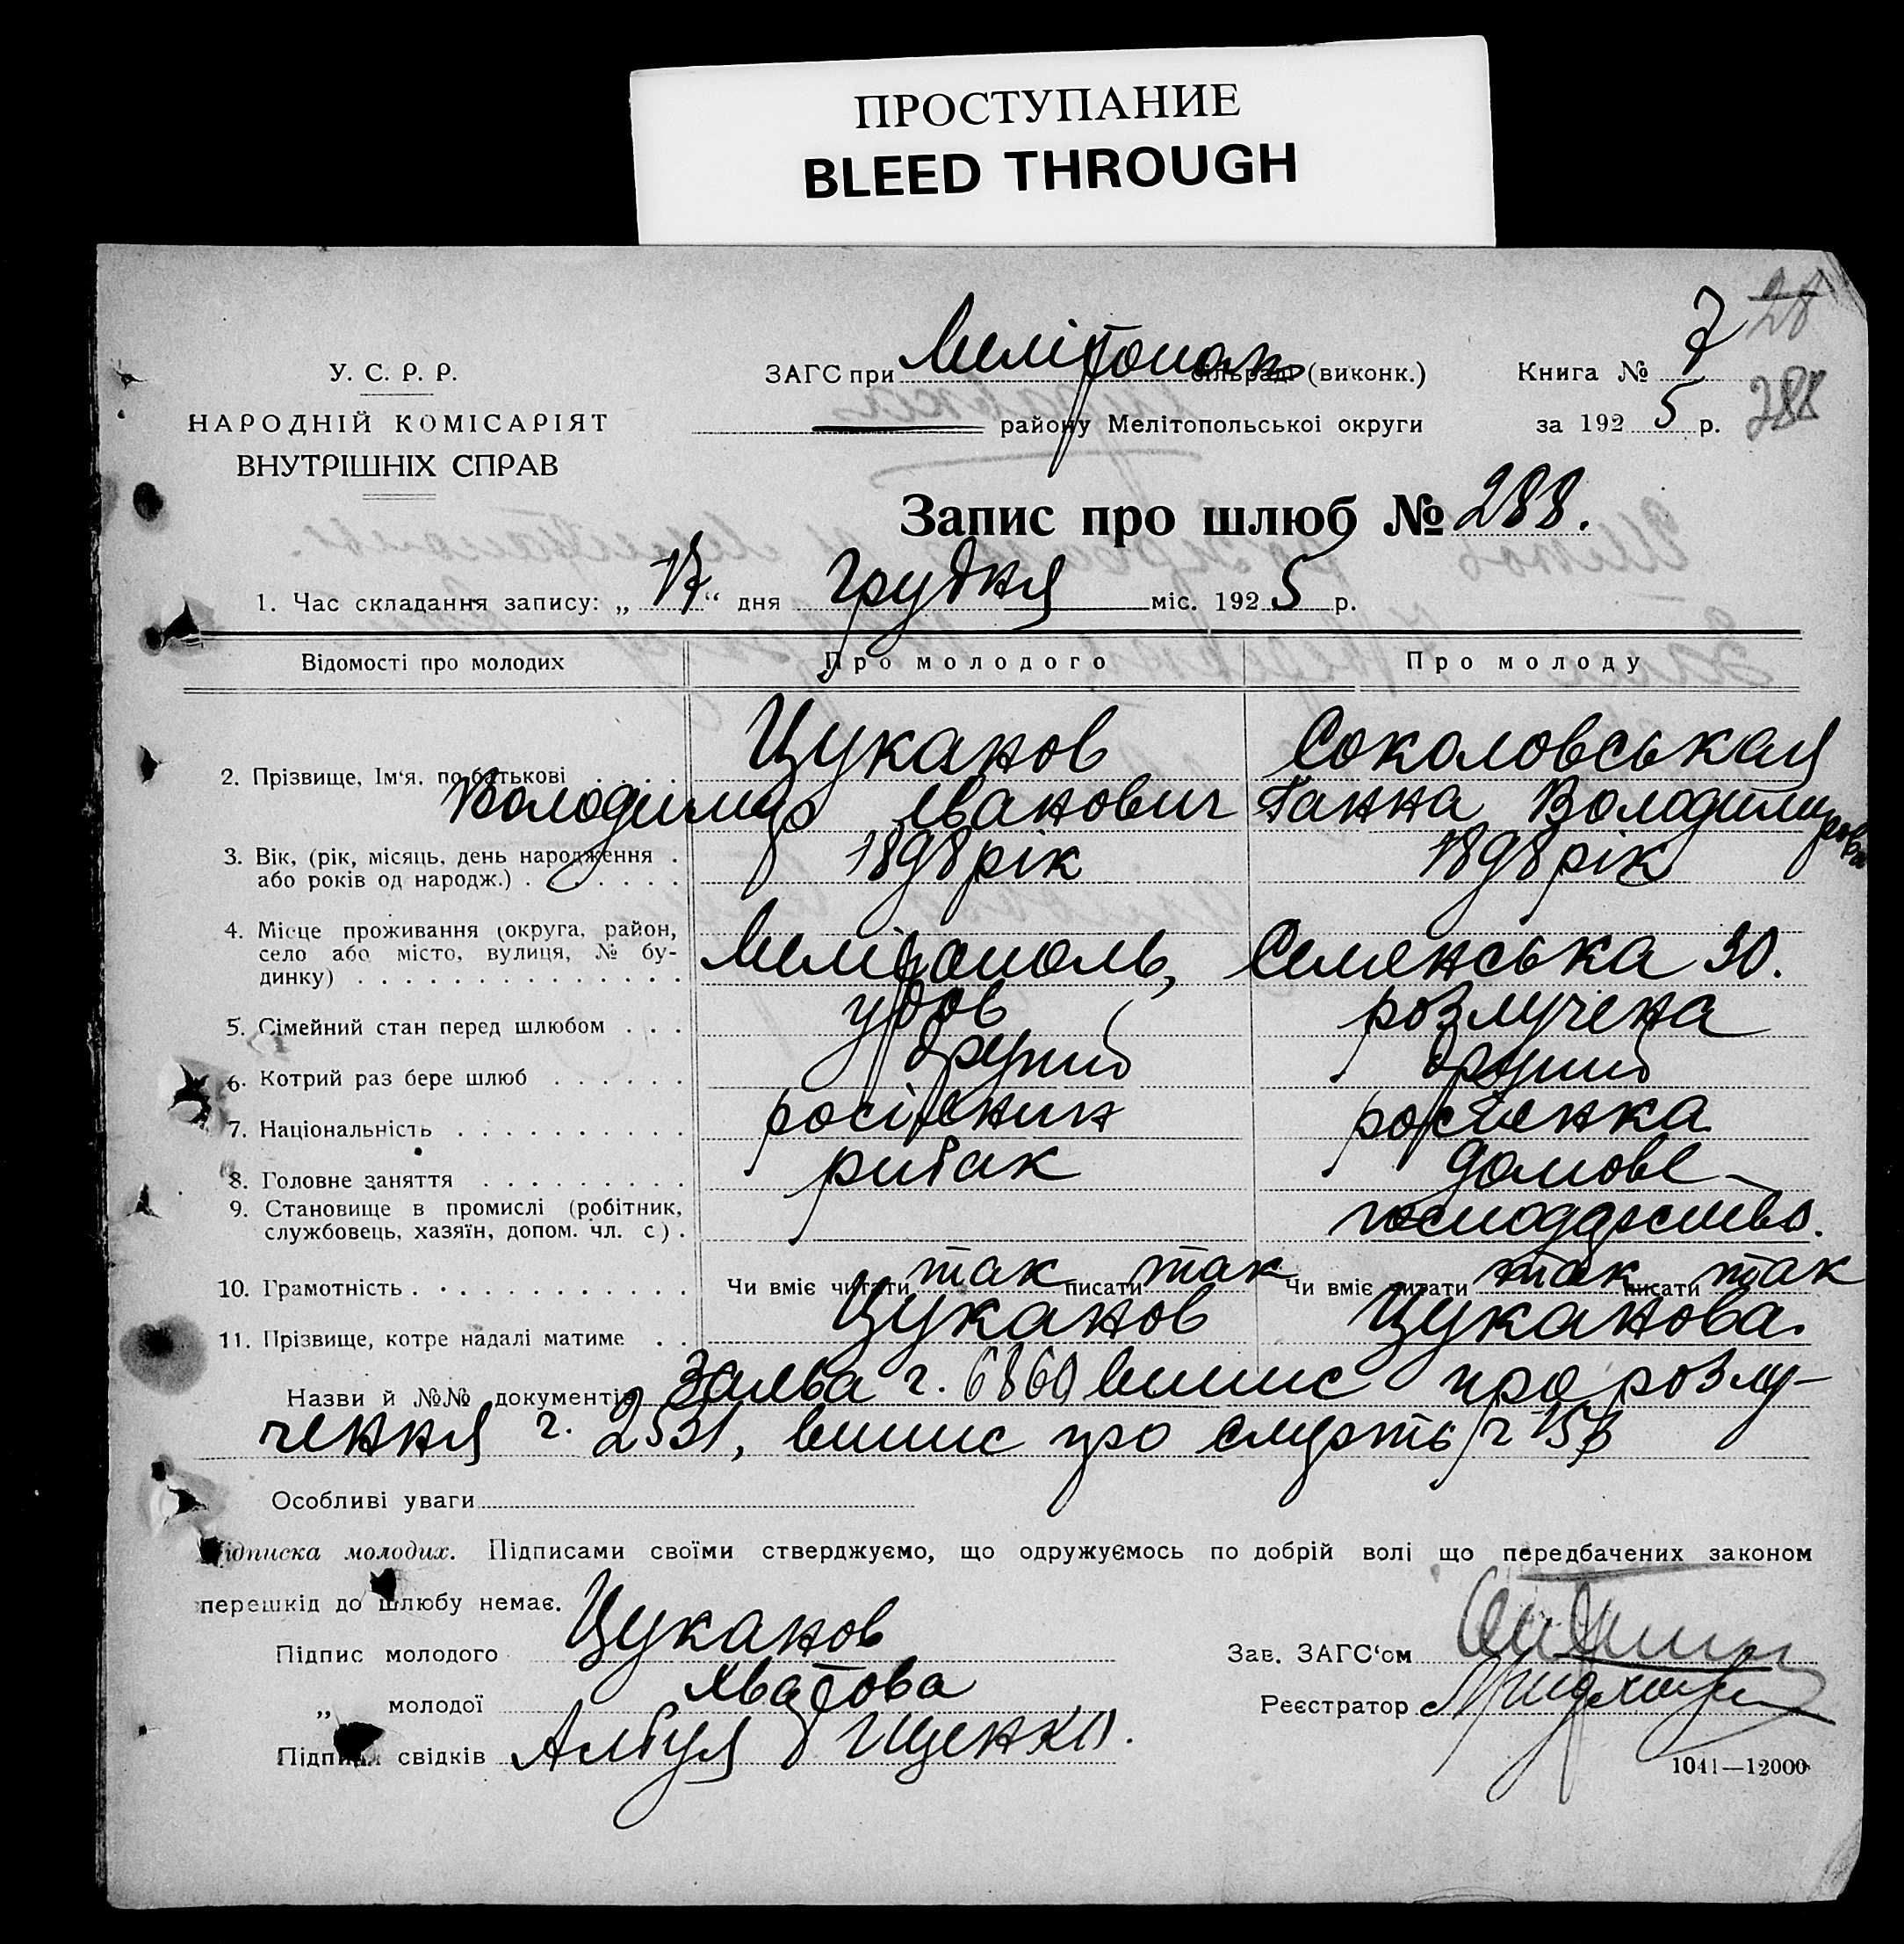 ПРОСТУПАНИЕ
BLEED THROUGH
28
У. С. Р. Р.
НАРОДНІЙ КОМІСАРІЯТ
ВНУТРІШНІХ СПРАВ
ЗАГС при Мелітопол. сільраді (виконк.)
району Мелітопольської округи
Книга № 7
за 1925 р.
288
Запис про шлюб № 288.
1. Час складання запису: „17“ дня грудня міс. 1925 р.
Відомості про молодих Про молодого Про молоду
2. Прізвище, Ім'я, по батькові . . . . Цуканов Соколовськая
Володимир Іванович Ганна Володимировн
3. Вік, (рік, місяць, день народження . 1898 рік 1898 рік
або років од народж.) . . . . . . .
4. Місце проживання (округа, район,
село або місто, вулиця, № бу- Мелітополь, Семенська 30.
динку) . . . . . . . . . . . . . .
5. Сімейний стан перед шлюбом . . . удов розлучена
6. Котрий раз бере шлюб . . . . . . другий другий
7. Національність . . . . . . . . . . росіянин росіянка
8. Головне заняття . . . . . . . . . рибак домове-
9. Становище в промислі (робітник, господарство.
службовець, хазяїн, допом. чл. с) .
10. Грамотність . . . . . . . . . . . . Чи вміє читати так писати так Чи вміє читати так писати так
11. Прізвище, котре надалі матиме . . Цуканов Цуканова.
Назви й №№ документів Заява ч. 6860 випис про розлу-
чення ч. 2531, випис про смерть ч 157
Особливі уваги
Підписка молодих. Підписами своїми стверджуємо, що одружуємось по добрій волі що передбачених законом
перешкід до шлюбу немає.
Підпис молодого Цуканов Зав. ЗАГС'ом
„ молодої Реєстратор
Підписи свідків
1041—12000